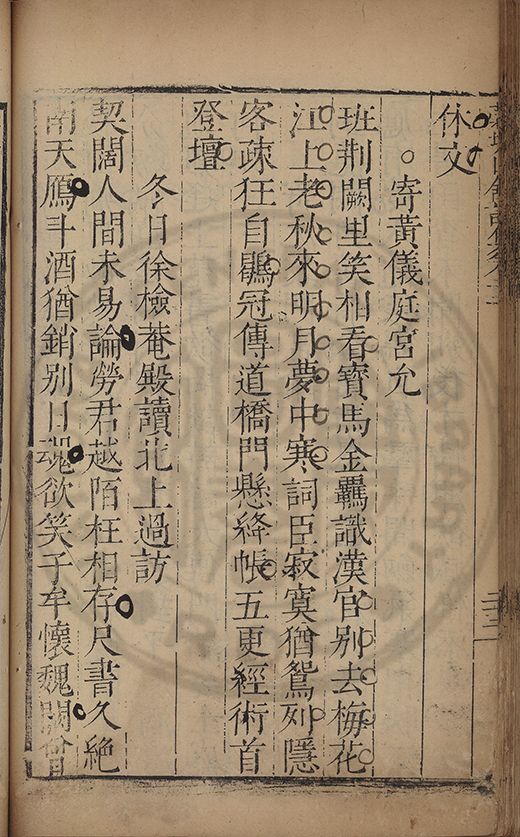 休文
寄黃儀庭宮允
班荆闕里笑相看寶馬金羈識漢官别去梅花
江上老秋來明月夢中寒詞臣寂寞猶鴛列隱
客疎狂自鶡冠傳道橋門懸絳帳五更經術首
登壇
冬日徐檢菴殿讀北上過訪
契闊人間未易論勞君越陌枉相存尺書久絶
南天鴈斗酒猶銷别日魂欲笑子牟懷魏闕